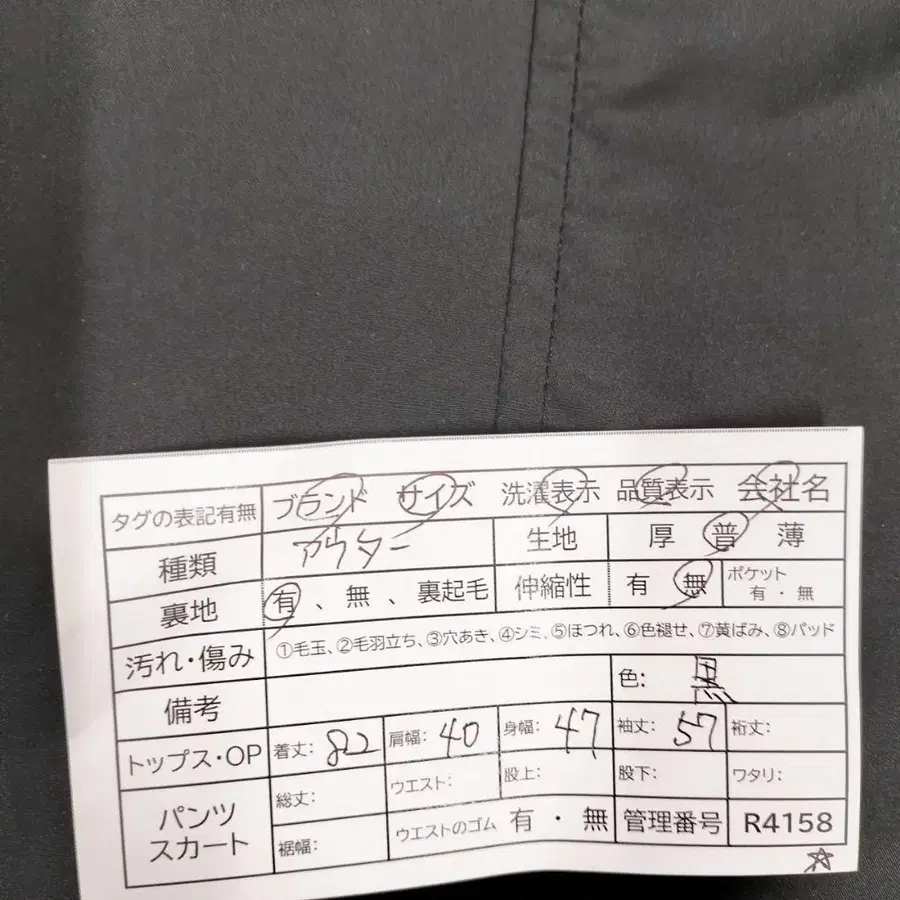 タグの表記有無 ブランド サイズ 洗濯表示 品質表示 会社名
種類 アウター 生地 厚 普 薄
裏地 有、無、裏起毛 伸縮性 有 無 ポケット 有・無
汚れ・傷み ①毛玉、②毛羽立ち、③穴あき、④シミ、⑤ほつれ、⑥色褪せ、⑦黄ばみ、⑧パッド
備考 色: 黒
トップス・OP 着丈: 82 肩幅: 40 身幅: 47 袖丈: 57 裄丈:
パンツ スカート 総丈: ウエスト: 股上: 股下: ワタリ:
裾幅: ウエストのゴム 有・無 管理番号 R4158